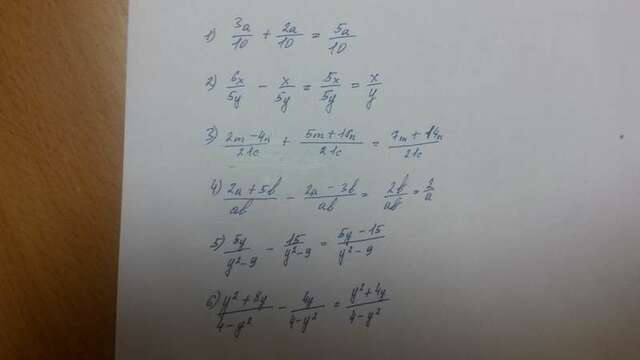 1) 3a/10 + 2a/10 = 5a/10
2) 6x/5y - x/5y = 5x/5y = x/y
3) 2m-4n/21c + 5m+18n/21c = 7m+14n/21c
4) 2a+5b/ab - 2a-3b/ab = 2b/ab = 2/a
5) 5y/y²-9 - 15/y²-9 = 5y-15/y²-9
6) y²+8y/4-y² - 4y/4-y² = y²+4y/4-y²